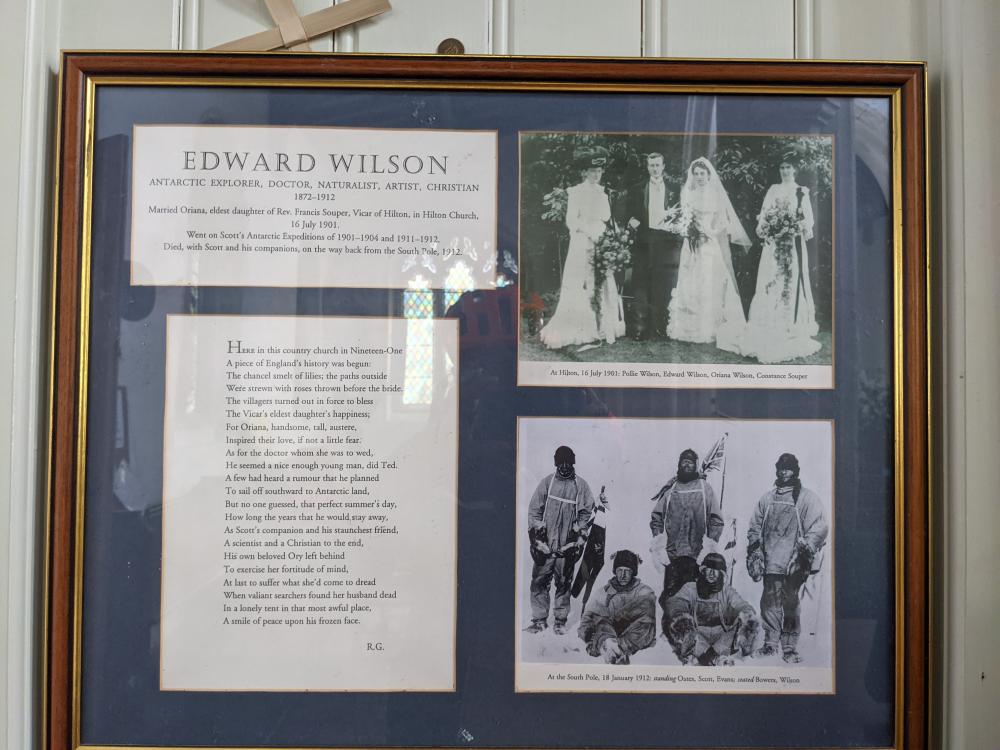 EDWARD WILSON
ANTARCTIC EXPLORER, DOCTOR, NATURALIST, ARTIST, CHRISTIAN
1872–1912
Married Oriana, eldest daughter of Rev. Francis Souper, Vicar of Hilton, in Hilton Church,
16 July 1901.
Went on Scott's Antarctic Expeditions of 1901–1904 and 1911–1912.
Died, with Scott and his companions, on the way back from the South Pole, 1912.
HERE in this country church in Nineteen-One
A piece of England's history was begun:
The chancel smelt of lilies; the paths outside
Were strewn with roses thrown before the bride.
The villagers turned out in force to bless
The Vicar's eldest daughter's happiness;
For Oriana, handsome, tall, austere,
Inspired their love, if not a little fear.
As for the doctor whom she was to wed,
He seemed a nice enough young man, did Ted.
A few had heard a rumour that he planned
To sail off southward to Antarctic land,
But no one guessed, that perfect summer's day,
How long the years that he would stay away,
As Scott's companion and his staunchest friend,
A scientist and a Christian to the end,
His own beloved Ory left behind
To exercise her fortitude of mind,
At last to suffer what she'd come to dread
When valiant searchers found her husband dead
In a lonely tent in that most awful place,
A smile of peace upon his frozen face.
R.G.
At Hilton, 16 July 1901: Pollie Wilson, Edward Wilson, Oriana Wilson, Constance Souper
At the South Pole, 18 January 1912: standing Oates, Scott, Evans; seated Bowers, Wilson